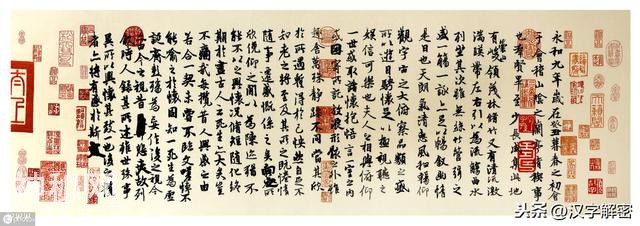 永和九年歲在癸丑暮春之初會
于會稽山陰之蘭亭脩稧事
也羣賢畢至少長咸集此地
有崇山峻領茂林脩竹又有清流激
湍暎帶左右引以為流觴曲水
列坐其次雖無絲竹管弦之
盛一觴一詠亦足以暢敘幽情
是日也天朗氣清惠風和暢仰
觀宇宙之大俯察品類之盛
所以遊目騁懷足以極視聽之
娛信可樂也夫人之相與俯仰
一世或取諸懷抱悟言一室之內
或因寄所託放浪形骸之外雖
趣舍萬殊靜躁不同當其欣
於所遇暫得於己怏然自足不
知老之將至及其所之既惓情
隨事遷感慨係之矣向之所
欣俛仰之間以為陳迹猶不
能不以之興懷況脩短隨化終
期於盡古人云死生亦大矣豈
不痛哉每攬昔人興感之由
若合一契未嘗不臨文嗟悼不
能喻之於懷固知一死生為虛
誕齊彭殤為妄作後之視今
亦由今之視昔悲夫故列
敘時人錄其所述雖世殊事
異所以興懷其致一也後之攬
者亦將有感於斯
头条@汉字解密